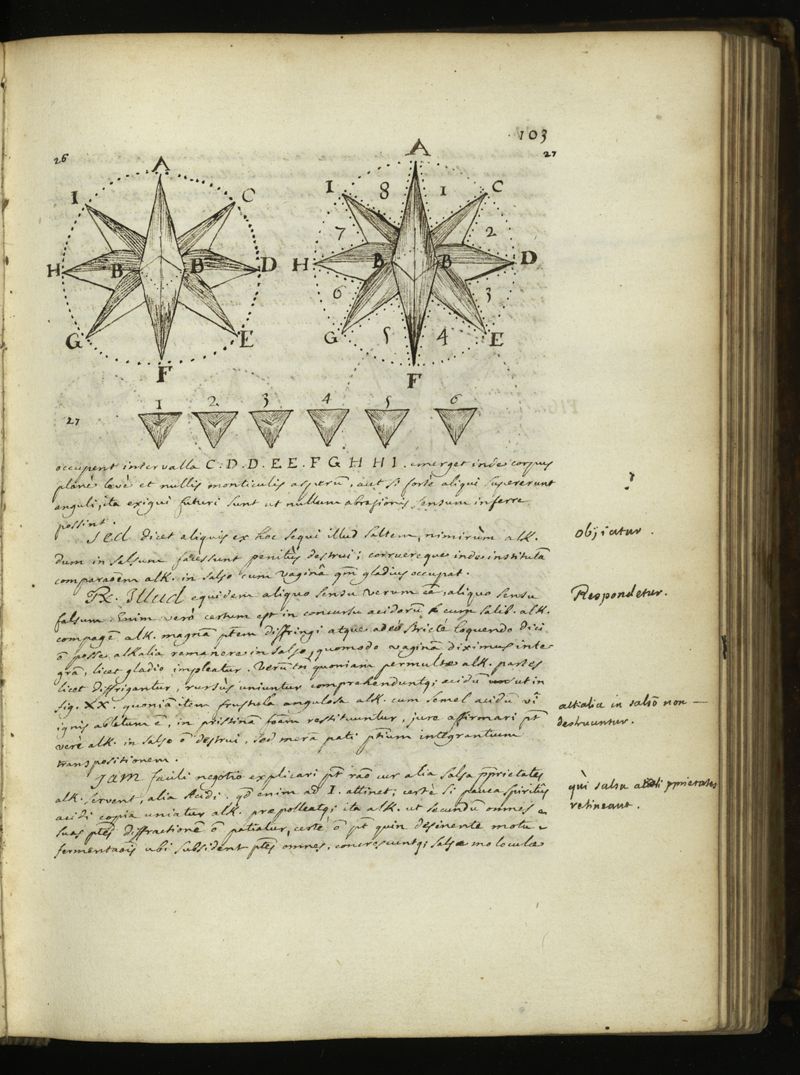 103
26
27
A
I
C
H
B
B
D
G
E
F
A
I
8
1
C
7
2
H
B
B
D
6
3
G
5
4
E
F
27
1 2 3 4 5 6
occupent intervalla C. D. D. E E. F G H H I. emerget inde corpus
planè leve et nullis monticulis asperū, aut si forte aliqui supererunt
anguli, ita exigui futuri sunt ut nullum abrasionis sensum inferre
possint.
Sed dicet aliquis ex hoc sequi illud saltem, nimirùm alk.
dum in salsum facessunt penitùs destrui; corruereque inde institutā
comparaōem alk. in salso cum vaginâ qm̄ gladius occupat.
objicitur.
Rx. Illud equidem aliquo sensu verum eē, aliquo sensu
Respondetur.
falsum. Enim verò certum est in concursu acidorū cum salib. alk.
compagē alk. magnā ptem diffringi atque adeò strictè loquendo dici
ō posse alkalia remanere in salso, quomodo vaginā diximus inte
grā, licet gladio impleatur. Verūtn quoniam permultæ alk. partes
licet diffrigantur, rursùs uniuntur comprehenduntq; acidū ut in
fig. XX. quoniā item frustula angulosa alk. cum semel acidū vî
ignis ablatum ē, in pristinā restituuntur, jure affirmari pt
verè alk. in salso ō destrui, sed merā pati ptium integrantium
transpositionem.
alkalia in salsō non
destruuntur.
Jam facili negotio explicari pt rāo cur alia salsa pprietates
alk. servent, alia Acidi. qd enim ad I. attinet; certè si pauca spiritûs
acidi copia uniatur alk. præpolleatq; ita alk. ut secundū omnes
suas ptes diffractionē ō patiatur, certè ō pt quin desinente motu
fermentaōis ubi subsident ptes omnes, concrescuntq; salsæ moleculæ
salsa pprietates
retineant.